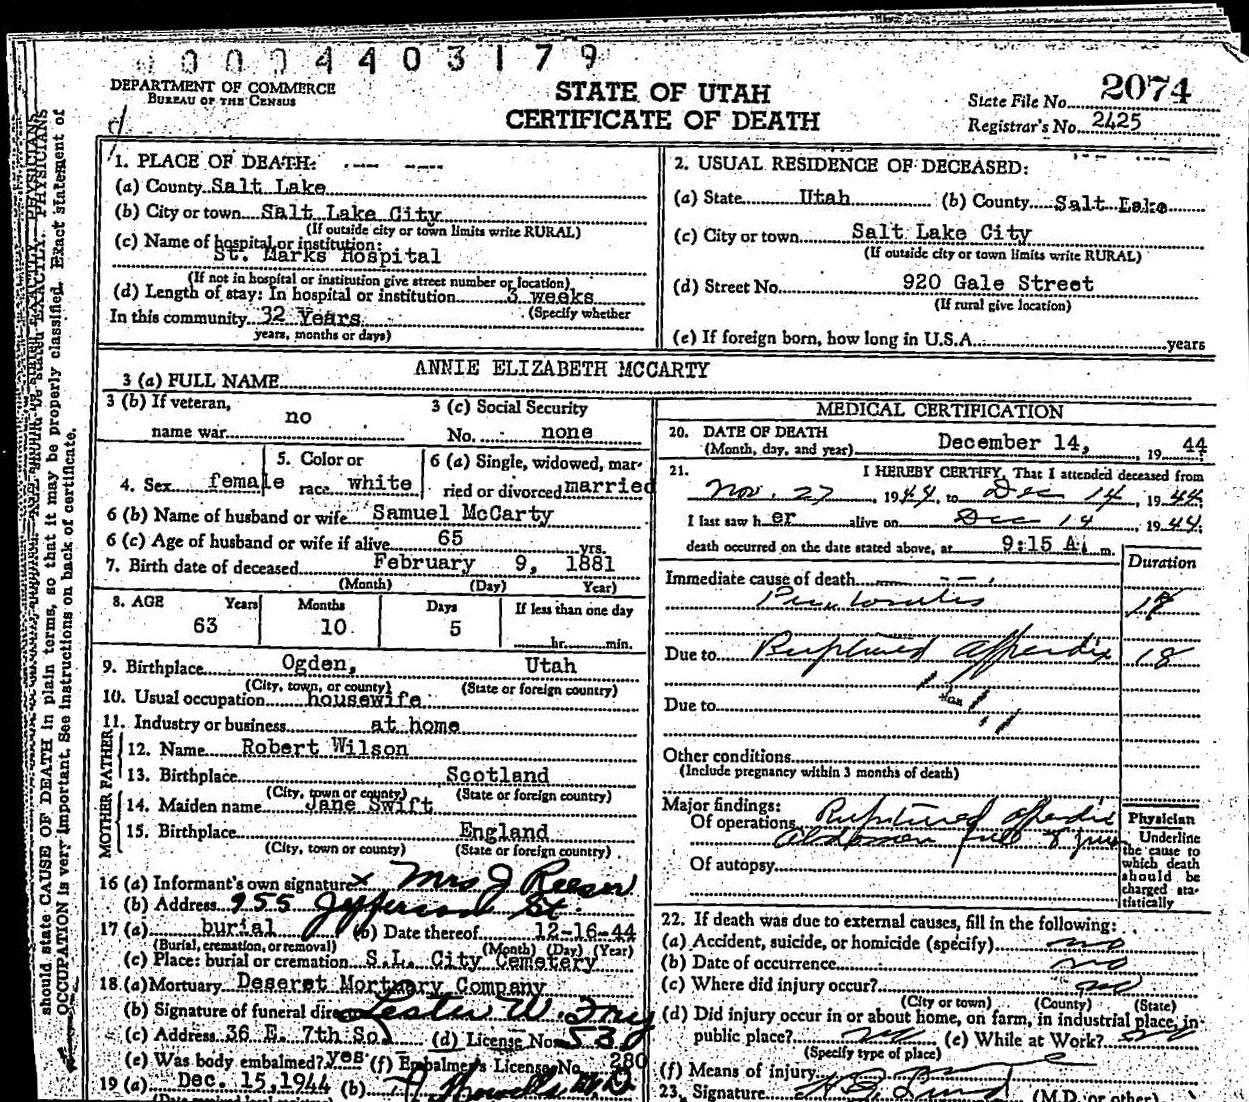 0004403179
DEPARTMENT OF COMMERCE
BUREAU OF THE CENSUS
STATE OF UTAH
CERTIFICATE OF DEATH
State File No. 2074
Registrar's No. 2425
1. PLACE OF DEATH:
(a) County Salt Lake
(b) City or town Salt Lake City
(If outside city or town limits write RURAL)
(c) Name of hospital or institution:
St. Marks Hospital
(If not in hospital or institution give street number or location)
(d) Length of stay: In hospital or institution 3 weeks
(Specify whether
In this community 32 Years
years, months or days)
2. USUAL RESIDENCE OF DECEASED:
(a) State Utah (b) County Salt Lake
(c) City or town Salt Lake City
(If outside city or town limits write RURAL)
(d) Street No. 920 Gale Street
(If rural give location)
(e) If foreign born, how long in U.S.A. years
3 (a) FULL NAME ANNIE ELIZABETH MCCARTY
3 (b) If veteran, name war no
3 (c) Social Security No. none
4. Sex female
5. Color or race white
6 (a) Single, widowed, married or divorced married
6 (b) Name of husband or wife Samuel McCarty
6 (c) Age of husband or wife if alive 65 yrs.
7. Birth date of deceased February 9, 1881
(Month) (Day) Year)
8. AGE Years Months Days If less than one day
63 10 5 hr. min.
9. Birthplace Ogden, Utah
(City, town, or county) (State or foreign country)
10. Usual occupation housewife
11. Industry or business at home
FATHER
12. Name Robert Wilson
13. Birthplace Scotland
(City, town or county) (State or foreign country)
MOTHER
14. Maiden name Jane Swift
15. Birthplace England
(City, town or county) (State or foreign country)
16 (a) Informant's own signature x Mrs J Reeser
(b) Address 955 Jefferson St.
17 (a) burial (b) Date thereof 12-16-44
(Burial, cremation, or removal) (Month) (Day) (Year)
(c) Place: burial or cremation S.L. City Cemetery
18 (a) Mortuary Deseret Mortuary Company
(b) Signature of funeral dire Lester W.
(c) Address 36 E. 7th So. (d) License No. 530
(e) Was body embalmed? yes (f) Embalmer's License No. 280
19 (a) Dec. 15, 1944 (b)
MEDICAL CERTIFICATION
20. DATE OF DEATH
(Month, day, and year) December 14, 1944
21. I HEREBY CERTIFY, That I attended deceased from
Nov. 27, 1944, to Dec 14, 1944
I last saw her alive on Dec 14, 1944
death occurred on the date stated above, at 9:15 A. m.
Duration
Immediate cause of death
Peritonitis 18
Due to Ruptured appendix 18
Due to
Other conditions
(Include pregnancy within 3 months of death)
Major findings:
Of operations Ruptured appendix
Abdomen full of
Of autopsy
Physician
Underline
the cause to
which death
should be
charged sta-
tistically
22. If death was due to external causes, fill in the following:
(a) Accident, suicide, or homicide (specify) no
(b) Date of occurrence no
(c) Where did injury occur? no
(City or town) (County) (State)
(d) Did injury occur in or about home, on farm, in industrial place, in
public place? no (e) While at Work? no
(Specify type of place)
(f) Means of injury
23. Signature (M.D. or other)
should state CAUSE OF DEATH in plain terms, so that it may be properly classified. Exact statement of
OCCUPATION is very important. See instructions on back of certificate.